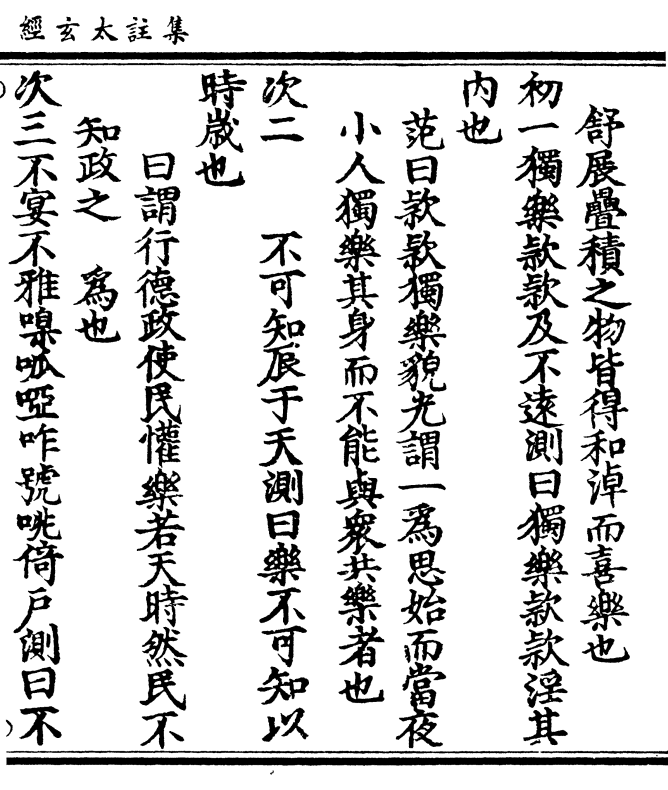 集註太玄經
舒展疊積之物皆得和淖而喜樂也
初一獨樂款款及不遠測曰獨樂款款淫其
內也
范曰款款獨樂貌光謂一爲思始而當夜
小人獨樂其身而不能與衆共樂者也
次二　不可知辰于天測曰樂不可知以
時歲也
曰謂行德政使民懽樂若天時然民不
知政之　爲也
次三不宴不雅嘄呱啞咋號咷倚戶測曰不